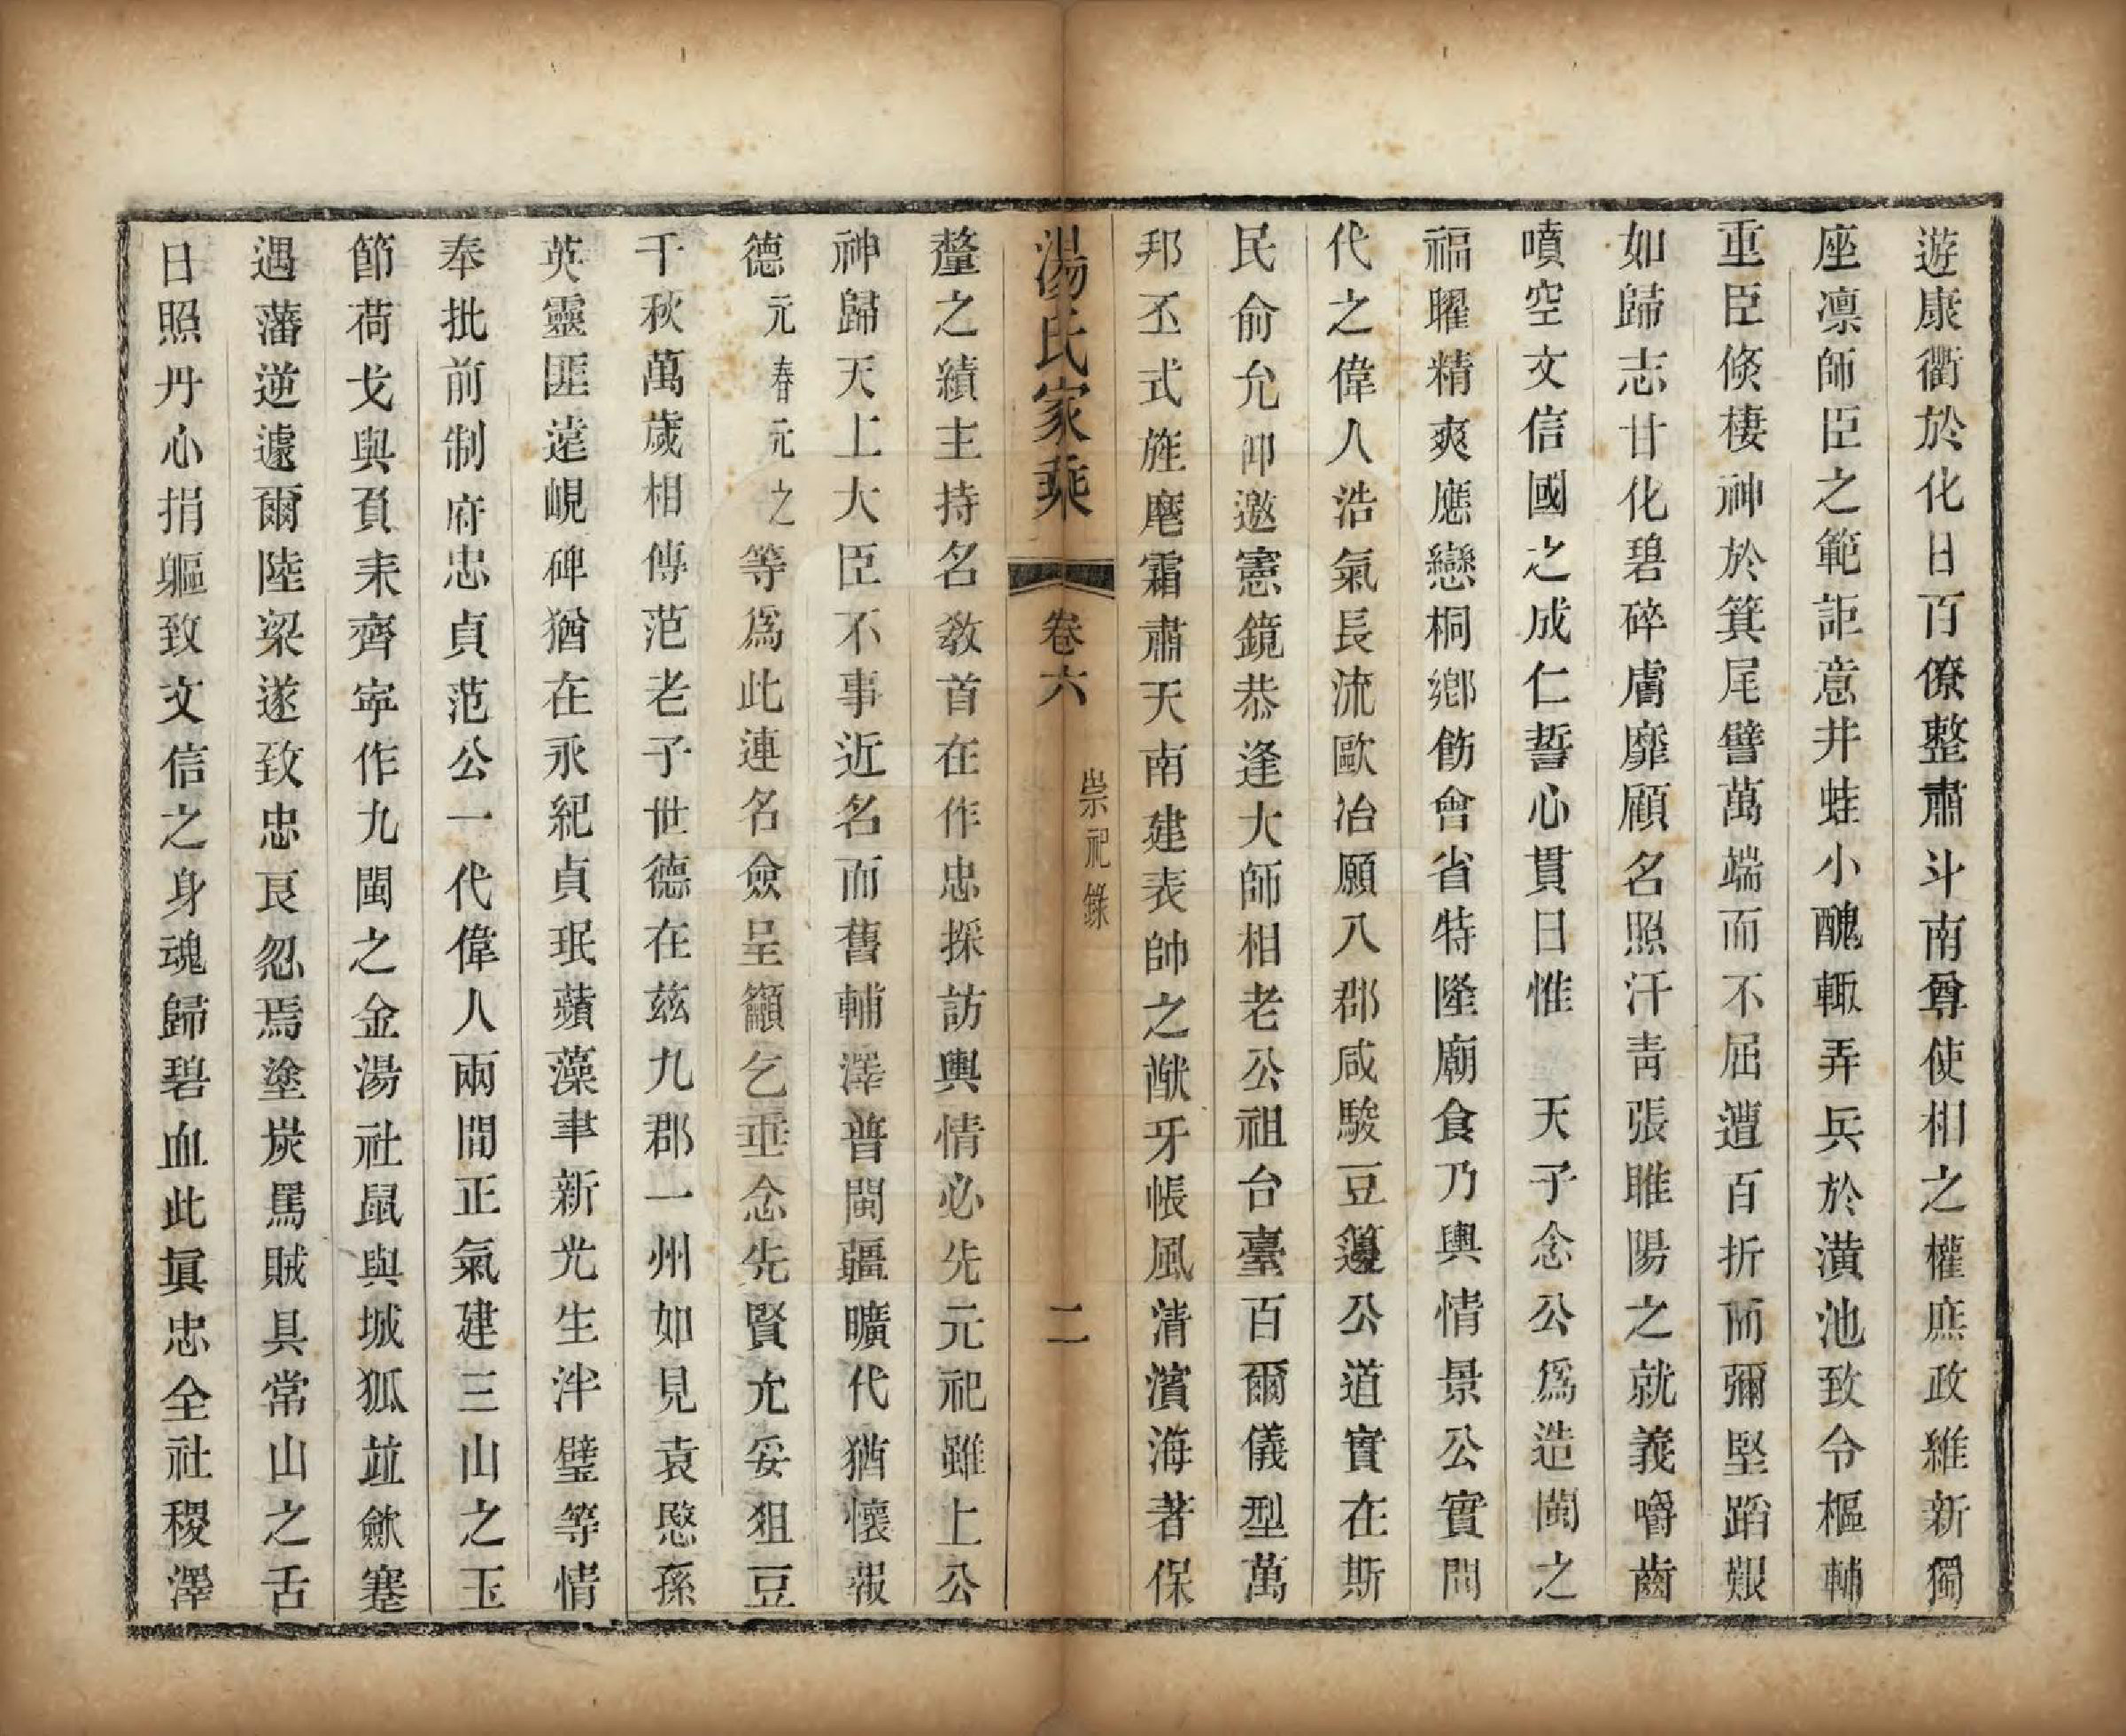 遊康衢於化日百僚整肅斗南尊使相之權庶政維新獨
座凛師臣之範詎意井蛙小醜輙弄兵於潢池致令樞輔
重臣倐棲神於箕尾譬萬端而不屈遭百折而彌堅蹈艱
如歸志甘化碧碎膚靡顧名照汗靑張睢陽之就義嚼齒
噴空文信國之成仁誓心貫日惟 天子念公爲造閩之
福曜精爽應戀桐鄕飭會省特隆廟食乃輿情景公實間
代之偉人浩氣長流歐冶願八郡咸駿豆籩公道實在斯
民俞允仰邀憲鏡恭逢大師相老公祖台臺百爾儀型萬
邦丕式旌麾霜肅天南建表帥之猷牙帳風淸濱海著保
湯氏家乘 卷六 崇祀錄 二
釐之績主持名敎首在作忠採訪輿情必先元祀雖上公
神歸天上大臣不事近名而舊輔澤普閩疆曠代猶懷報
德元春元之等爲此連名僉呈籲乞垂念先賢允妥狙豆
千秋萬歲相傳范老子世德在兹九郡一州如見袁愍孫
英靈匪遠峴碑猶在永紀貞珉蘋藻聿新光生泮璧等情
奉批前制府忠貞范公一代偉人兩間正氣建三山之玉
節荷戈與負耒齊寜作九閩之金湯社鼠與城狐竝歛蹇
遇藩逆遽爾陸梁遂致忠良忽焉塗炭罵賊具常山之舌
日照丹心捐軀致文信之身魂歸碧血此眞忠全社稷澤